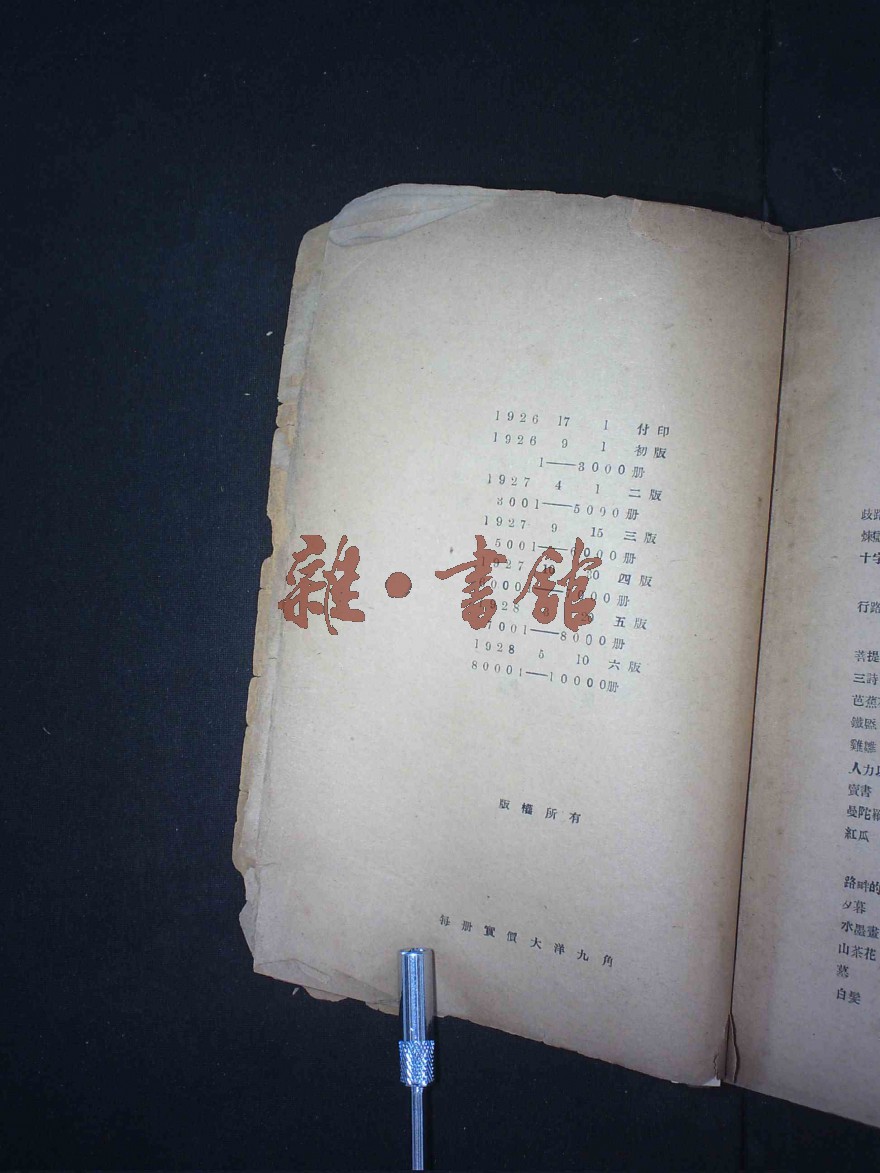 1926 17 1 付印
1926 9 1 初版
1——3000册
1927 4 1 二版
3001——5000册
1927 9 15 三版
5001——6000册
四版
五版
7001——8000册
1928 5 10 六版
80001——10000册
版權所有
每册實價大洋九角
雜·書舘
歧路
煉
十字
行路
菩提
三詩
芭蕉
鐵
雞雛
人力
賣書
曼陀羅
紅瓜
路畔的
夕暮
水墨畫
山茶花
墓
白髮